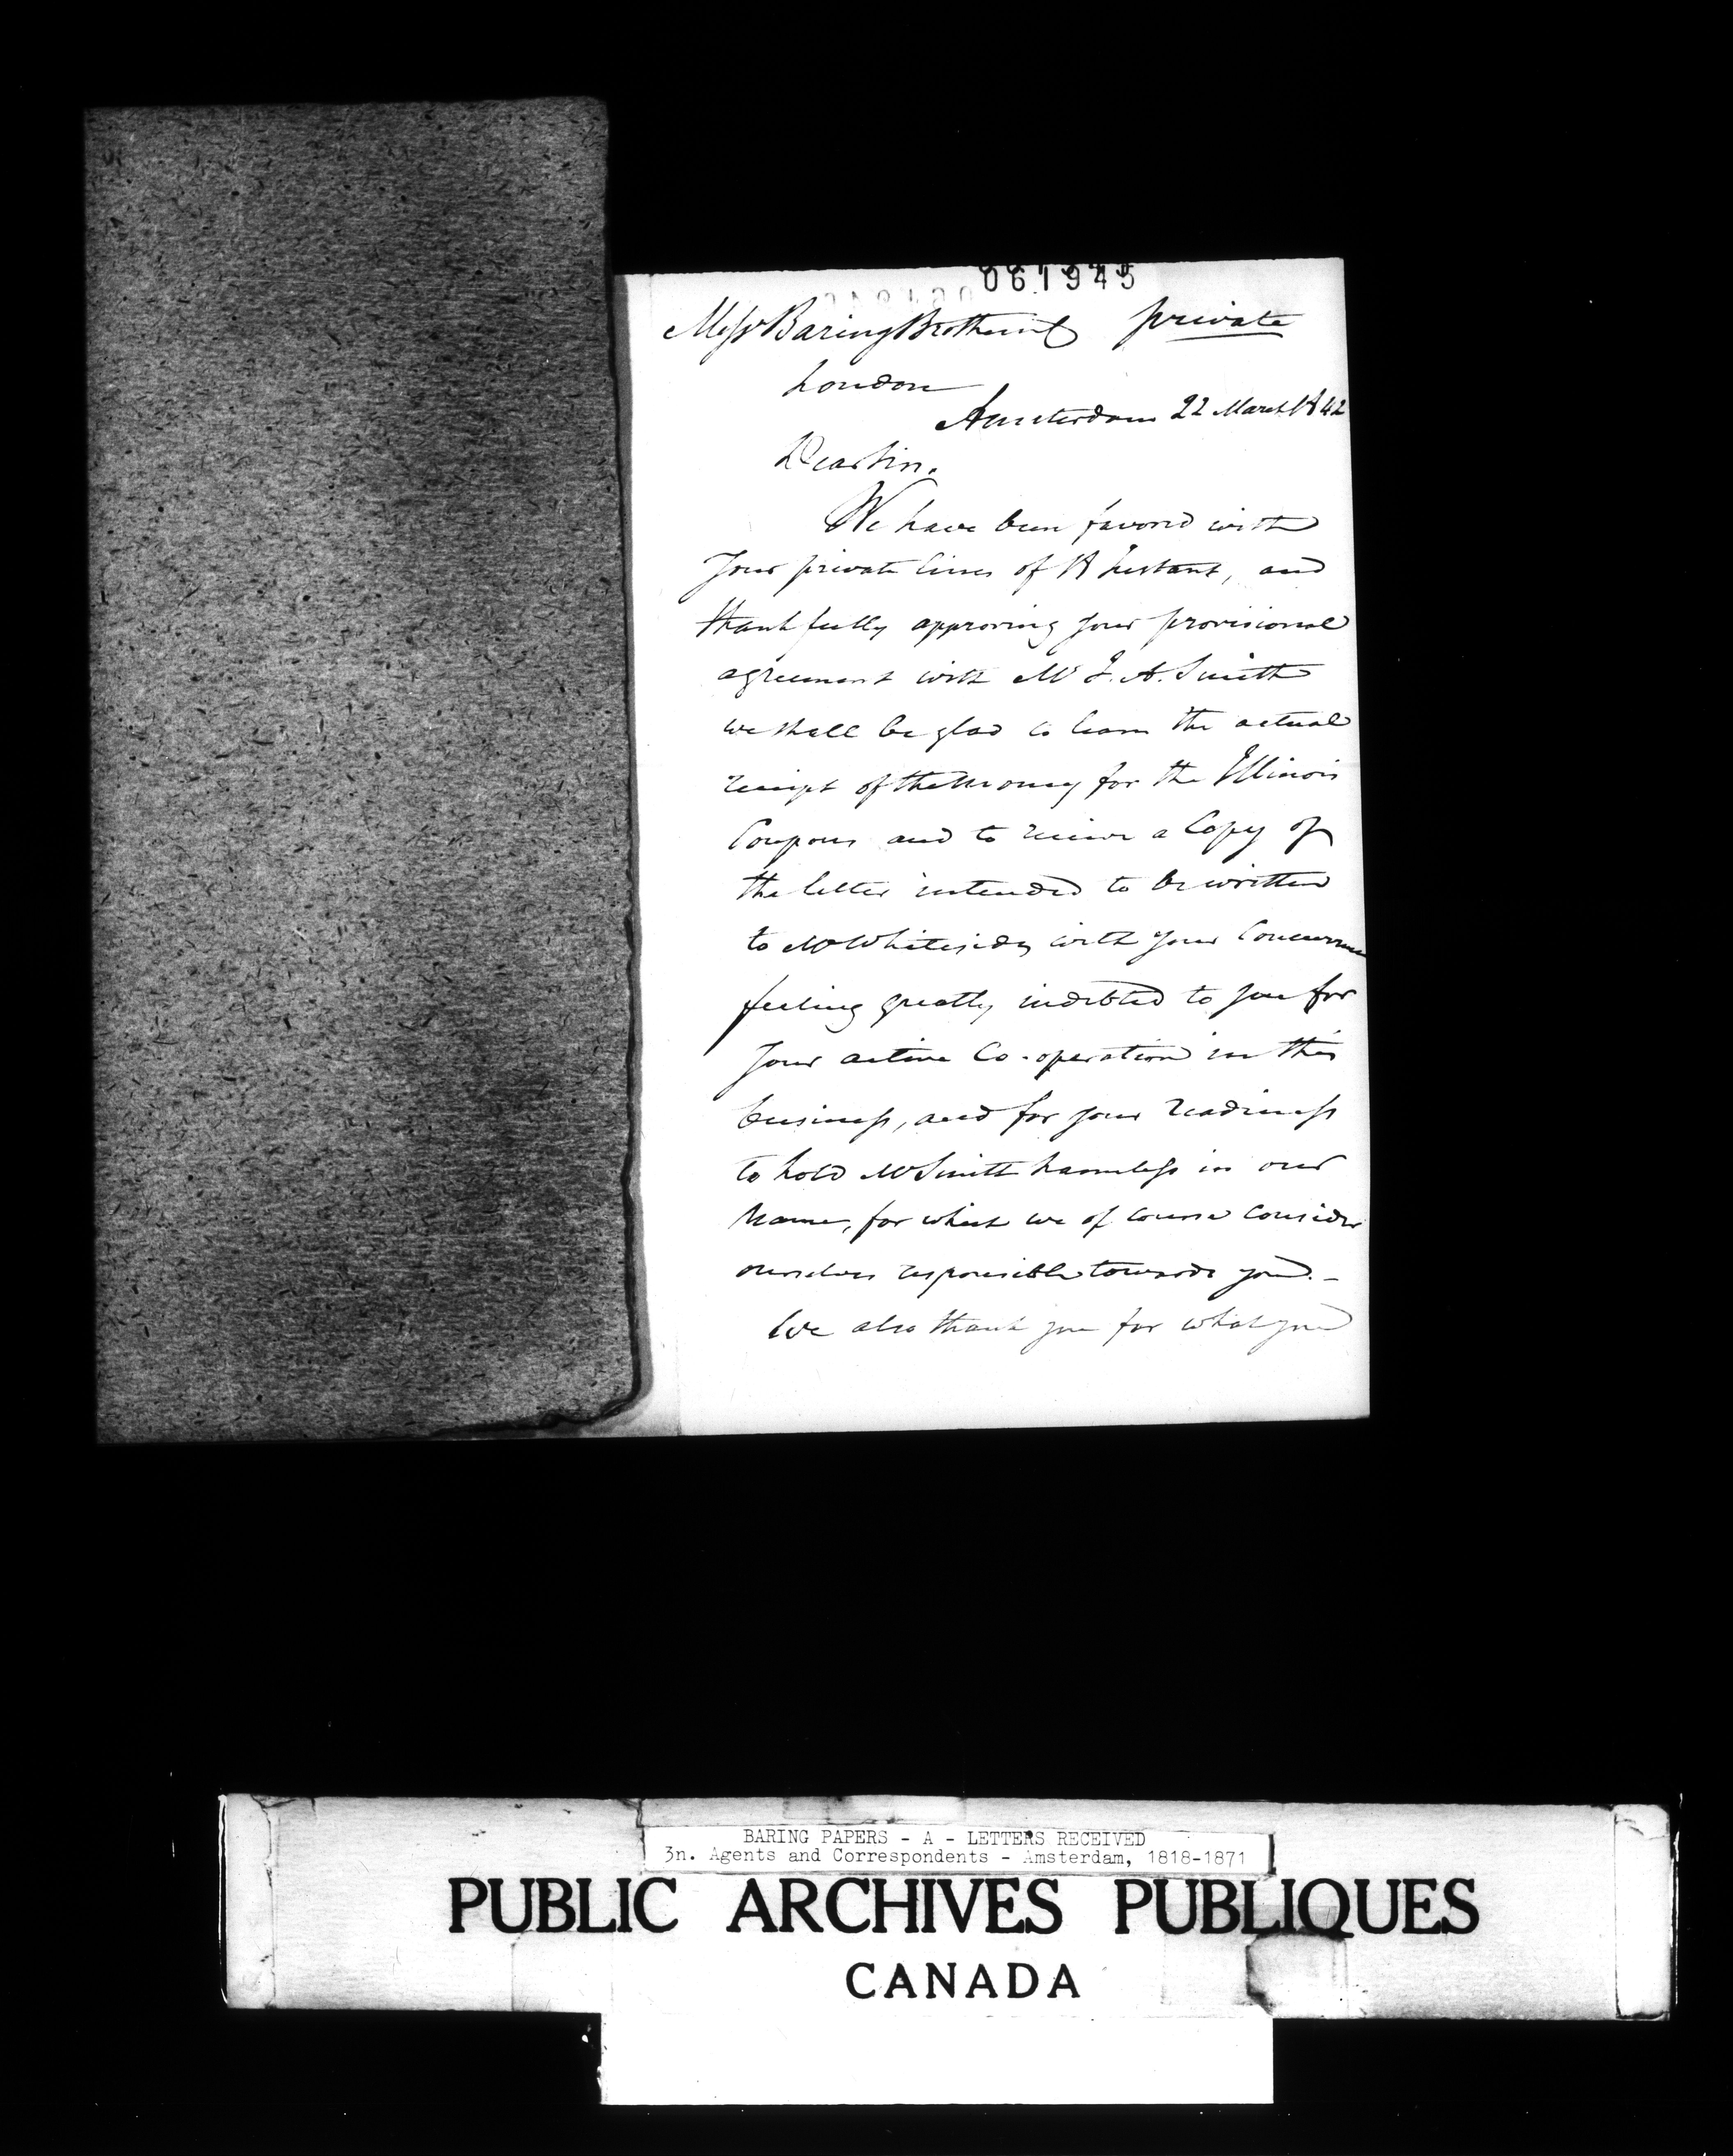 061945
Messrs Baring Brothers & Co private
London
Amsterdam 22 March 1842
Dear Sirs.
We have been favored with
your private lines of 18 Instant, and
thankfully approving your provisional
agreement with Mr J. A. Smith
we shall be glad to learn the actual
receipt of the Money for the Illinois
Coupons and to receive a Copy of
the letter intended to be written
to Mr Whitesides with your Concurrence
feeling greatly indebted to you for
your active Co-operation in this
business, and for your readiness
to hold Mr Smith harmless in our
Name, for which we of course consider
ourselves responsible towards you.-
We also thank you for what you
BARING PAPERS - A - LETTERS RECEIVED
3n. Agents and Correspondents - Amsterdam, 1818-1871
PUBLIC ARCHIVES PUBLIQUES
CANADA